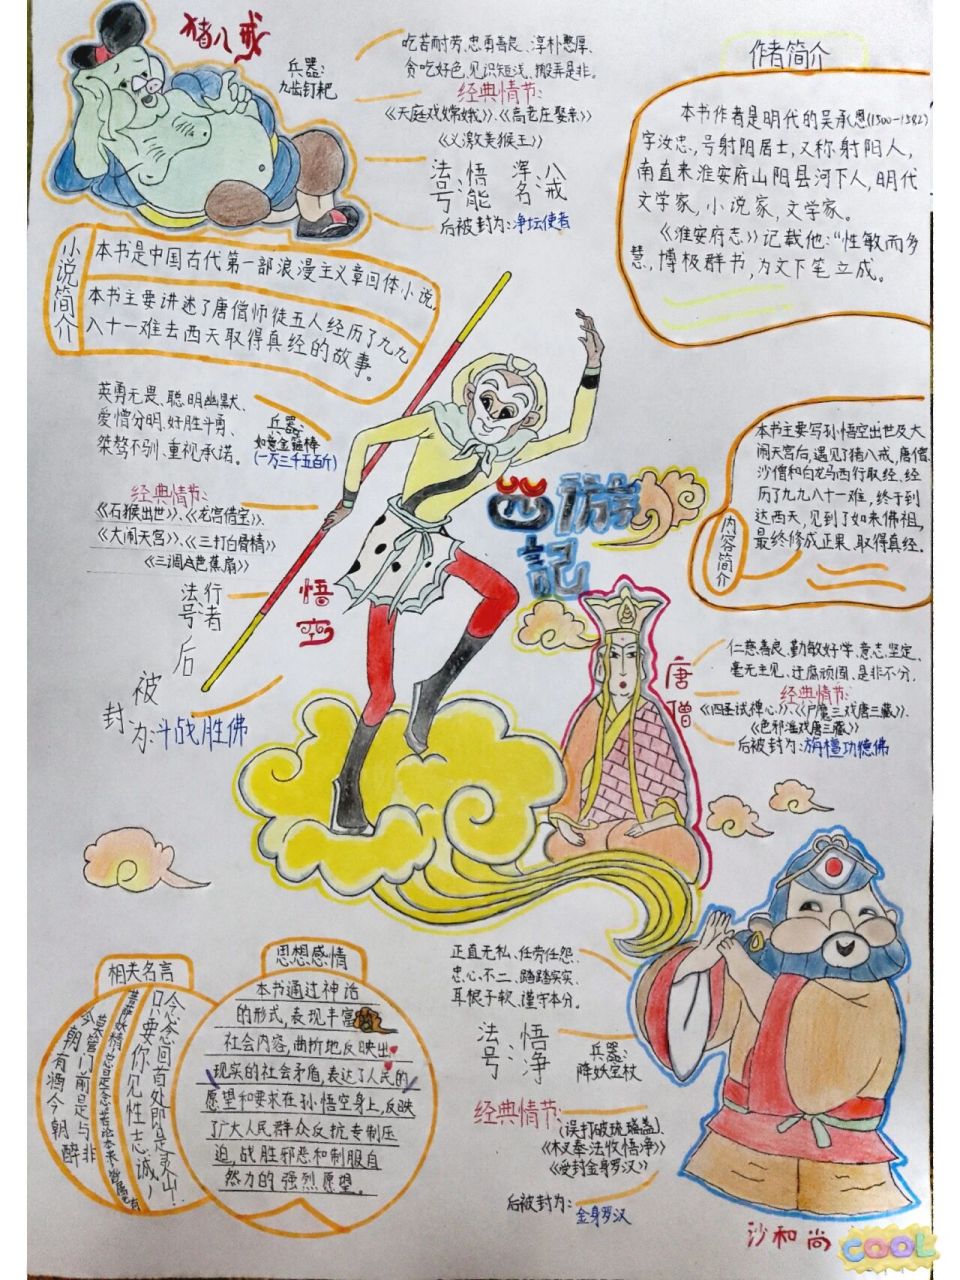 猪八戒
兵器：
九齿钉耙
吃苦耐劳、忠勇善良、淳朴憨厚、
贪吃好色、见识短浅、搬弄是非。
经典情节：
《天庭戏嫦娥》、《高老庄娶亲》
《义激美猴王》
法号：悟能
浑名：八戒
后被封为：净坛使者
作者简介
本书作者是明代的吴承恩(1500-1582)
字汝忠，号射阳居士，又称射阳人，
南直来淮安府山阳县河下人，明代
文学家，小说家，文学家。
《淮安府志》记载他："性敏而多
慧，博极群书，为文下笔立成。
小说简介
本书是中国古代第一部浪漫主义章回体小说，
本书主要讲述了唐僧师徒五人经历了九九
八十一难去西天取得真经的故事。
英勇无畏、聪明幽默、
爱憎分明、好胜斗勇、
桀骜不驯、重视承诺。
兵器：
如意金箍棒
(一万三千五百斤)
经典情节：
《石猴出世》、《龙宫借宝》、
《大闹天宫》、《三打白骨精》
《三调芭蕉扇》
法号：行者
后被封为：斗战胜佛
悟空
西游記
本书主要写孙悟空出世及大
闹天宫后，遇见了猪八戒、唐僧、
沙僧和白龙马西行取经，经
历了九九八十一难，终于到
达西天，见到了如来佛祖，
最终修成正果，取得真经。
内容简介
唐僧
仁慈善良、勤敏好学、意志坚定、
毫无主见、迂腐顽固、是非不分，
经典情节：
《四圣试禅心》、《尸魔三戏唐三藏》、
《色邪淫戏唐三藏》
后被封为：旃檀功德佛
相关名言
今朝有酒今朝醉
莫管门前是与非
菩萨妖精，总是一念，若论本来，皆属无有
只要你见性志诚，
念念回首处，即是灵山！
思想感情
本书通过神话
的形式，表现丰富
社会内容，曲折地反映出
现实的社会矛盾，表达了人民的
愿望和要求在孙悟空身上，反映
了广大人民群众反抗专制压
迫，战胜邪恶和制服自
然力的强烈愿望。
正直无私、任劳任怨、
忠心不二、踏踏实实、
耳根子软、谨守本分。
法号：悟净
兵器：
降妖宝杖
经典情节：
(误打破琉璃盏)、
《木叉奉法收悟净》
《受封金身罗汉》
后被封为：
金身罗汉
沙和尚
COOL